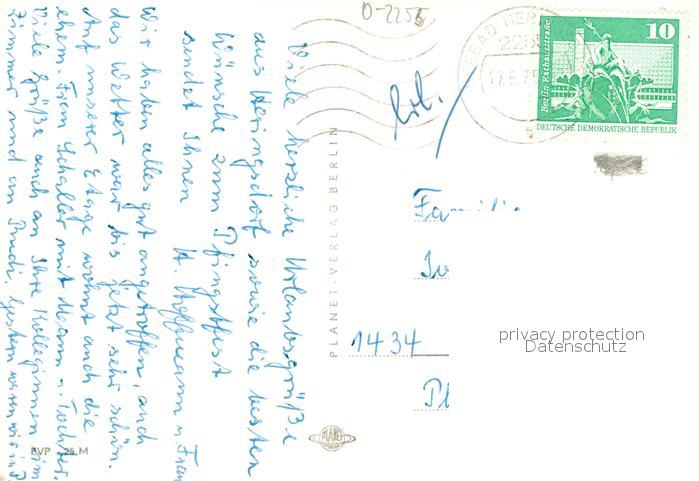 0-2255
SEEBAD HER
2255
17.5.75
Berlin, Rathausstraße
10
DEUTSCHE DEMOKRATISCHE REPUBLIK
Viele herzliche Urlaubsgrüße
aus Heringsdorf sowie die besten
Wünsche zum Pfingstfest
sendet Ihnen
H. Hoffmann u. Frau
Wir haben alles gut angetroffen, auch
das Wetter war bis jetzt sehr schön.
Auf unserer Etage wohnt auch die
ehem. Frau Schaller mit Mann u. Tochter.
Viele Grüße auch an Ihre Kolleginnen im
Zimmer und an Rudi. Gestern waren wir in
PLANET-VERLAG BERLIN
Familie
1434
Pl
PLANET
EVP -,25 M
privacy protection
Datenschutz